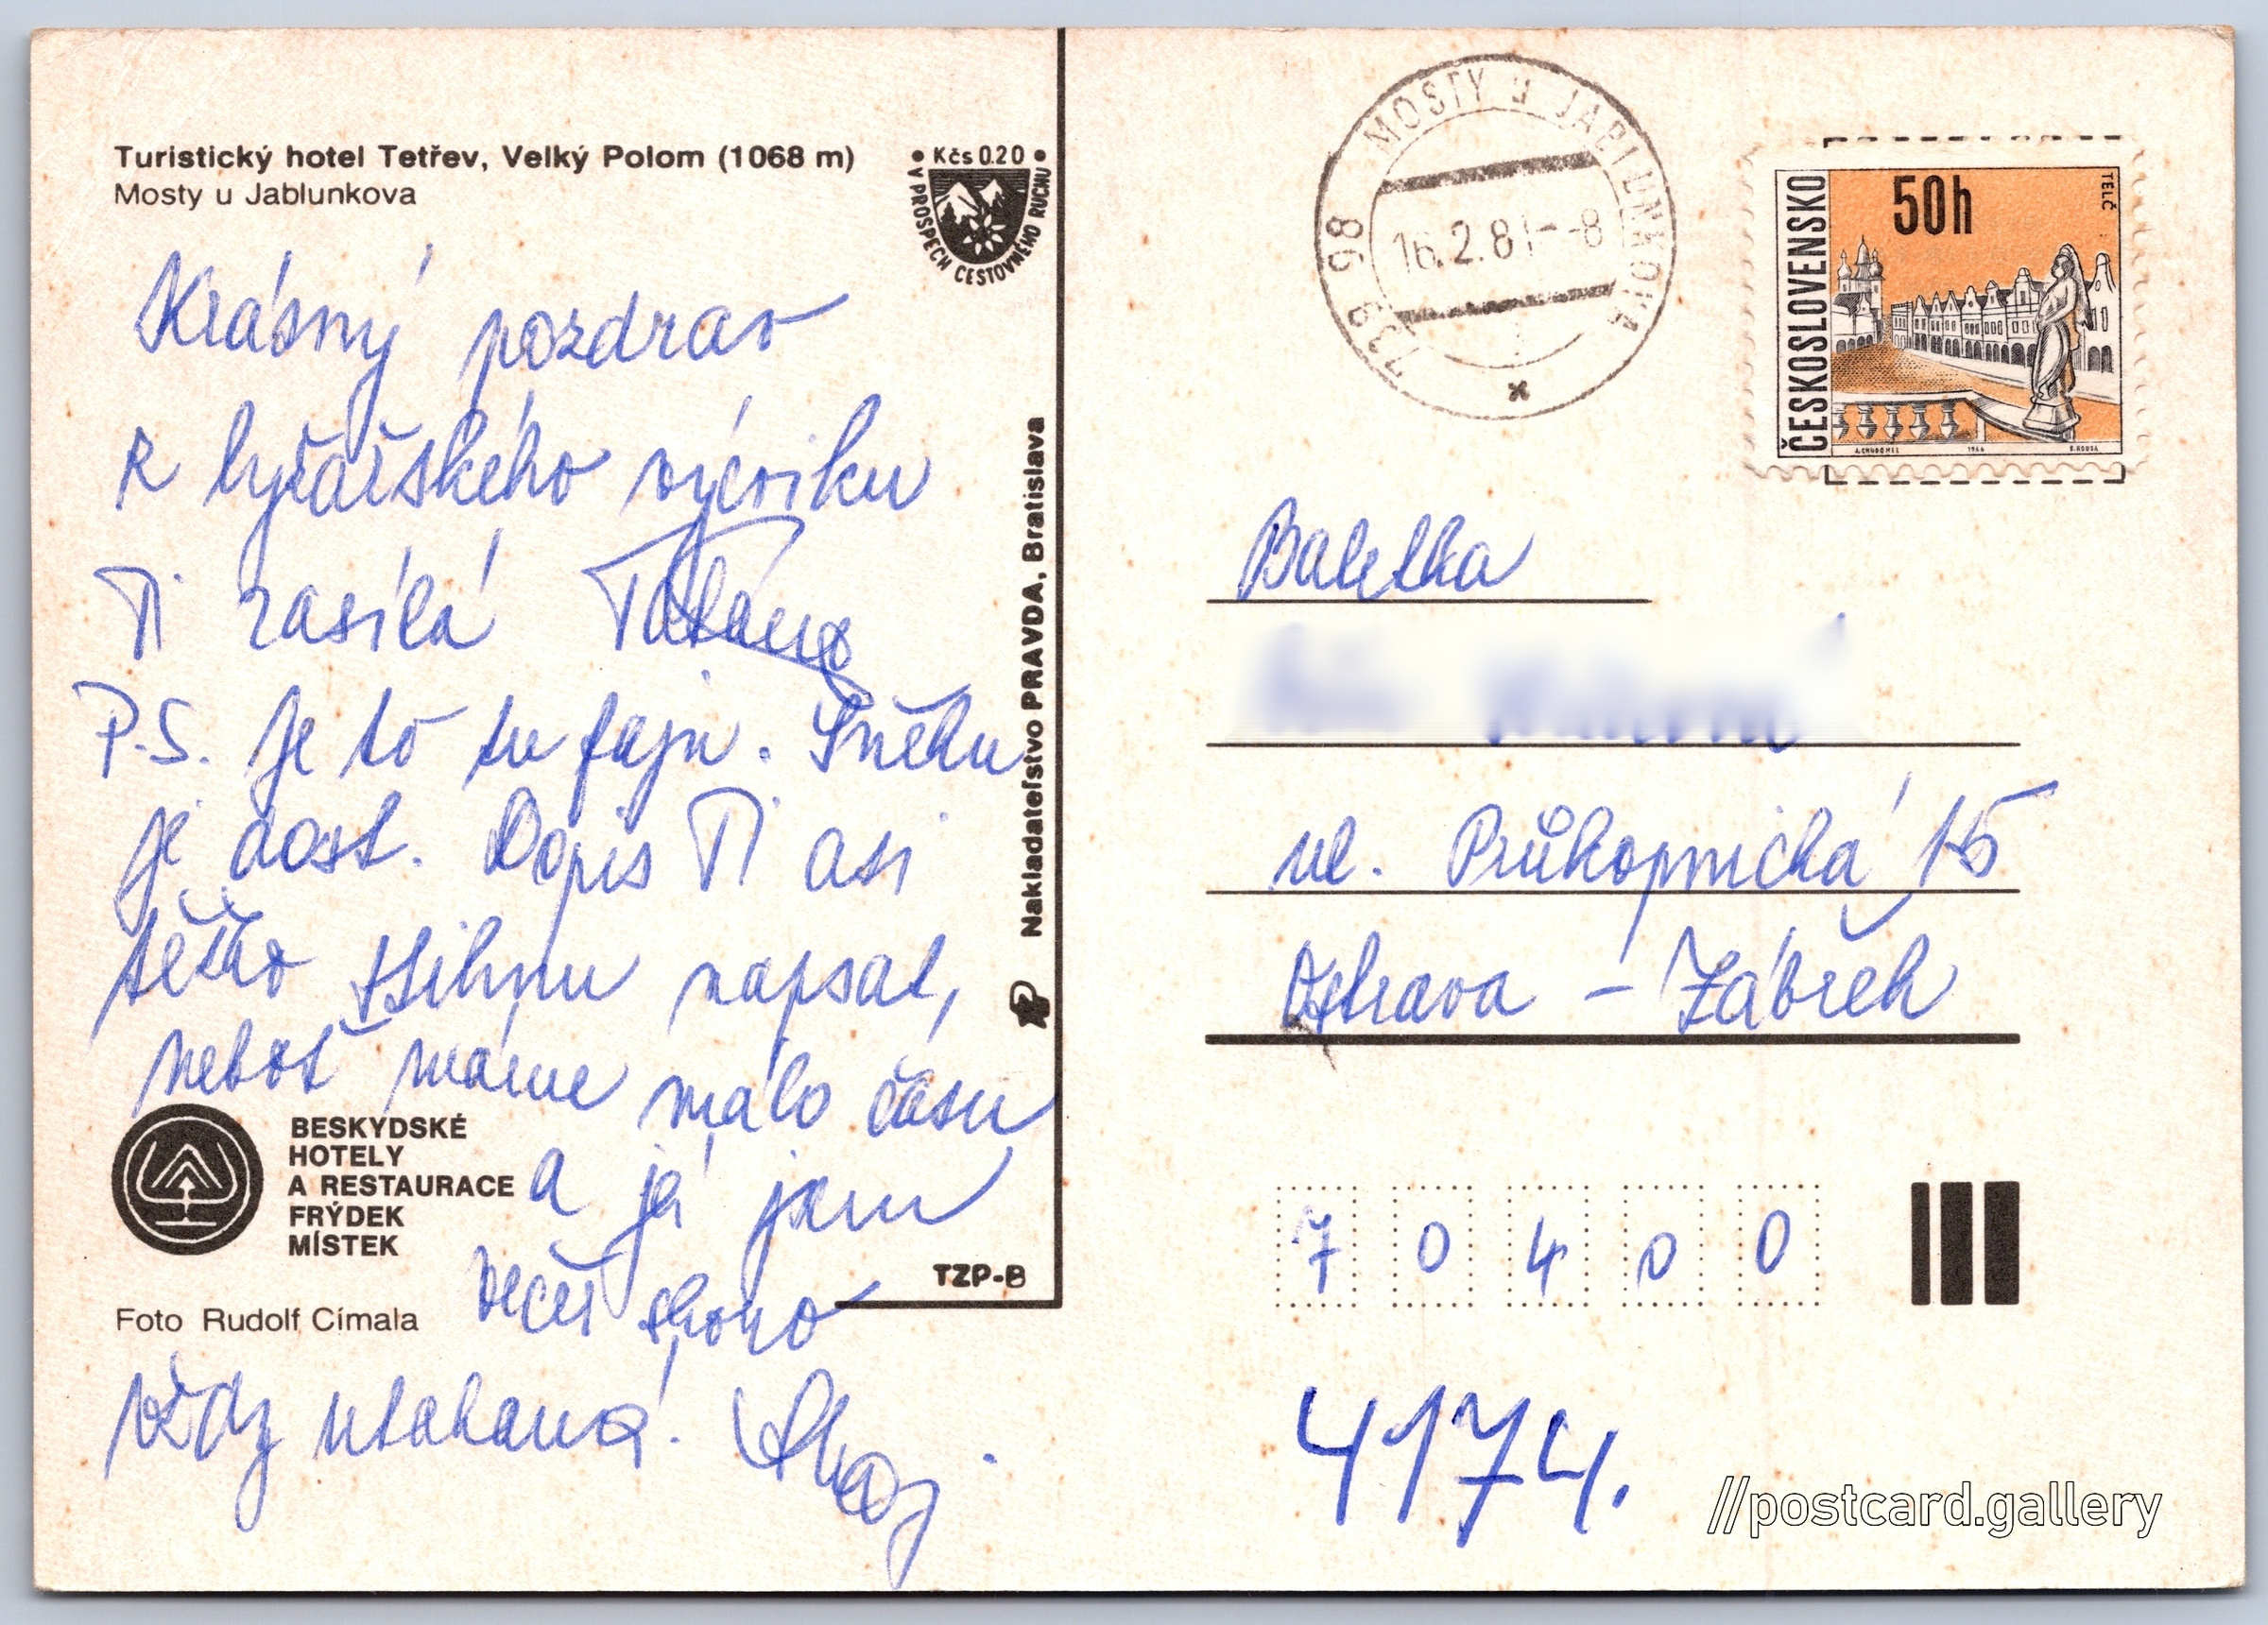 Turistický hotel Tetřev, Velký Polom (1068 m)
Mosty u Jablunkova
• Kčs 0.20 •
V PROSPĚCH CESTOVNÉHO RUCHU
Krásný pozdrav
z lyžařského výcviku
Ti zasílá Taťána
P.S. Je to tu fajn. Sněhu
je dost. Dopis Ti asi
těžko stihnu napsat,
neboť máme málo času
a já jsem
večer skoro
vždy utahaná. Ahoj.
BESKYDSKÉ
HOTELY
A RESTAURACE
FRÝDEK
MÍSTEK
Foto Rudolf Címala
TZP-B
Nakladateľstvo PRAVDA, Bratislava
739 98 MOSTY U JABLUNKOVA
16.2.81--8
ČESKOSLOVENSKO
50h
TELČ
1966
ul. Průkopnická 15
Ostrava - Zábřeh
70400
4174.
//postcard.gallery